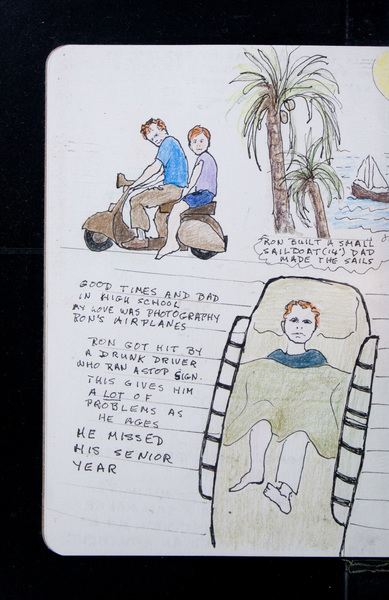 RON BUILT A SMALL
SAILBOAT (14') DAD
MADE THE SAILS
GOOD TIMES AND BAD
IN HIGH SCHOOL
MY LOVE WAS PHOTOGRAPHY
RON'S AIRPLANES
RON GOT HIT BY
A DRUNK DRIVER
WHO RAN A STOP SIGN.
THIS GIVES HIM
A LOT OF
PROBLEMS AS
HE AGES
HE MISSED
HIS SENIOR
YEAR